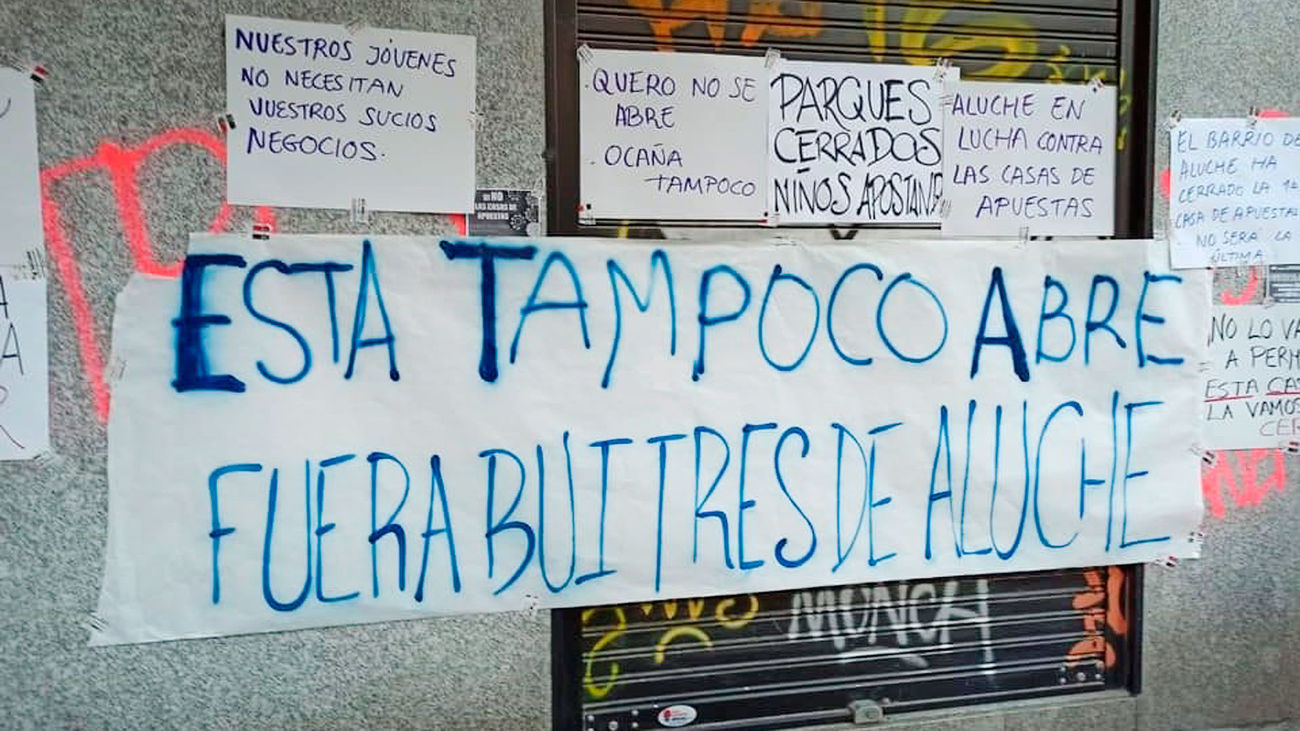 NUESTROS JÓVENES
NO NECESITAN
VUESTROS SUCIOS
NEGOCIOS.
NO
LAS CASAS DE
APUESTAS
. QUERO NO SE
ABRE
. OCAÑA
TAMPOCO
PARQUES
CERRADOS
NIÑOS APOSTANDO
ALUCHE EN
LUCHA CONTRA
LAS CASAS DE
APUESTAS
EL BARRIO DE
ALUCHE HA
CERRADO LA 1ª
CASA DE APUESTAS
NO SERÁ LA
ÚLTIMA
ESTA TAMPOCO ABRE
FUERA BUITRES DE ALUCHE
NO LO VA
A PERM
ESTA CAS
LA VAMOS
CER
MÜNCH